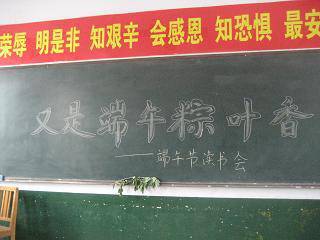 荣辱 明是非 知艰辛 会感恩 知恐惧 最安
又是端午粽叶香
——端午节读书会